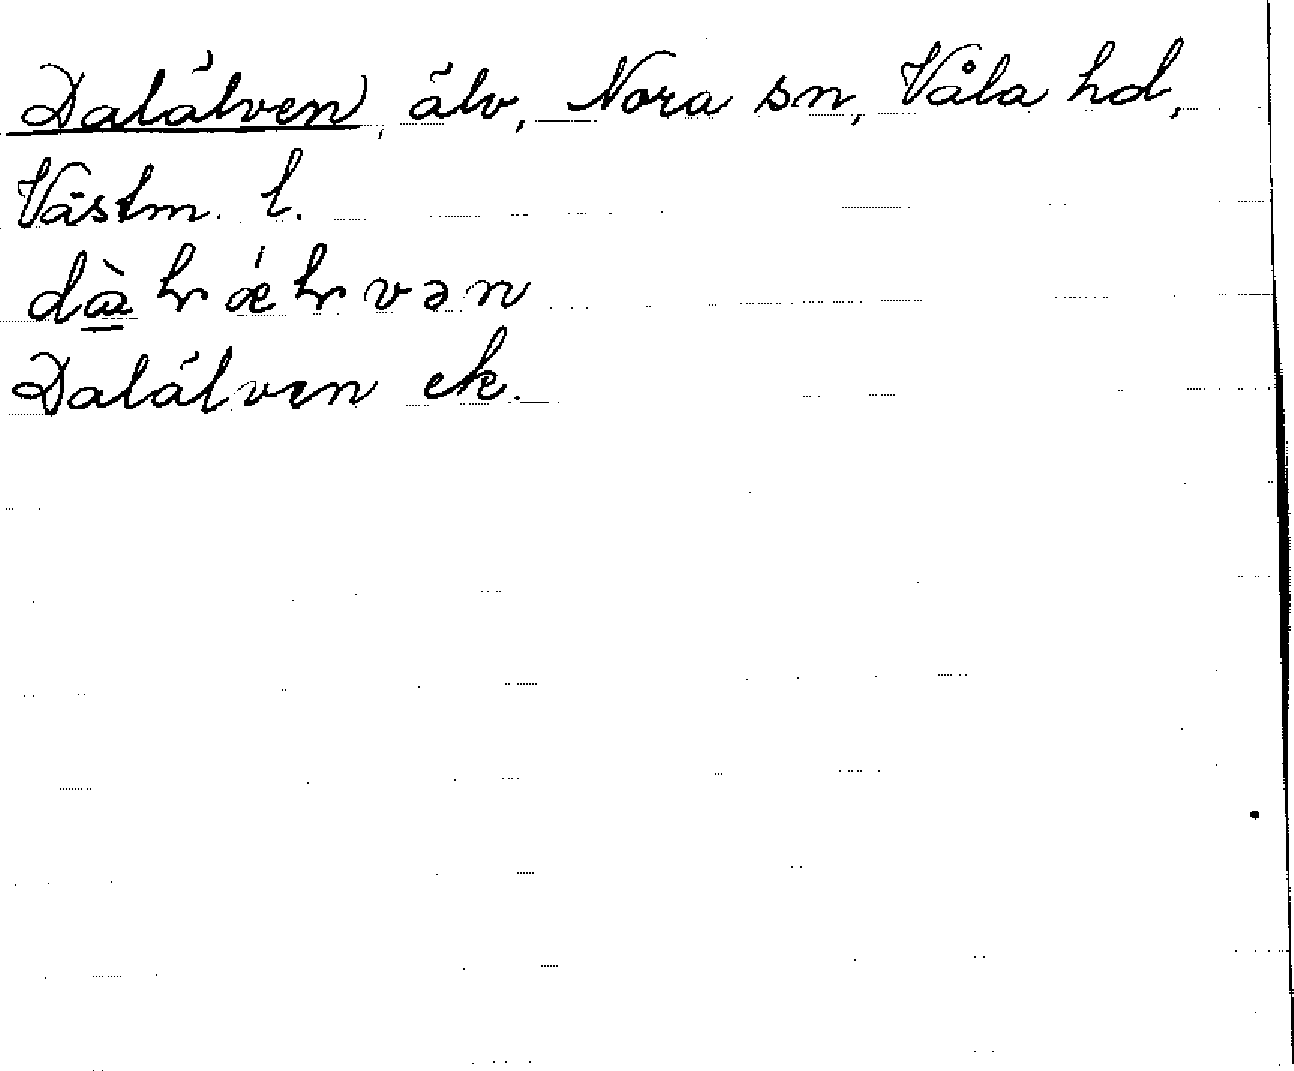 Dalälven, älv, Nora sn, Våla hd,
Västm. l.
Dalälven ek.